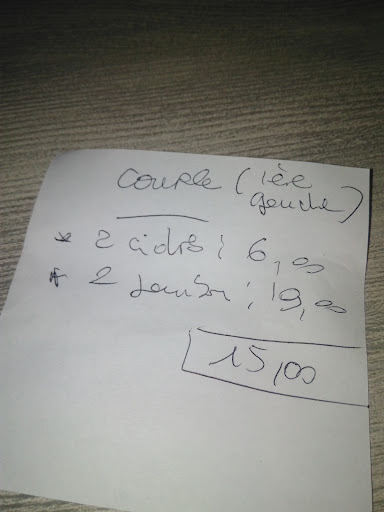 couple (1ère
gauche)
* 2 cidre : 6,00
* 2 : 9,00
15,00